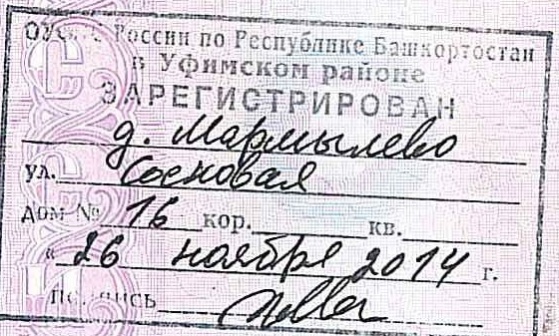 России по Республике Башкортостан
в Уфимском районе
ЗАРЕГИСТРИРОВАН
д. Мармылево
ул. Сосновая
дом № 16 кор. кв.
"26 ноября 2014 г.
Подпись